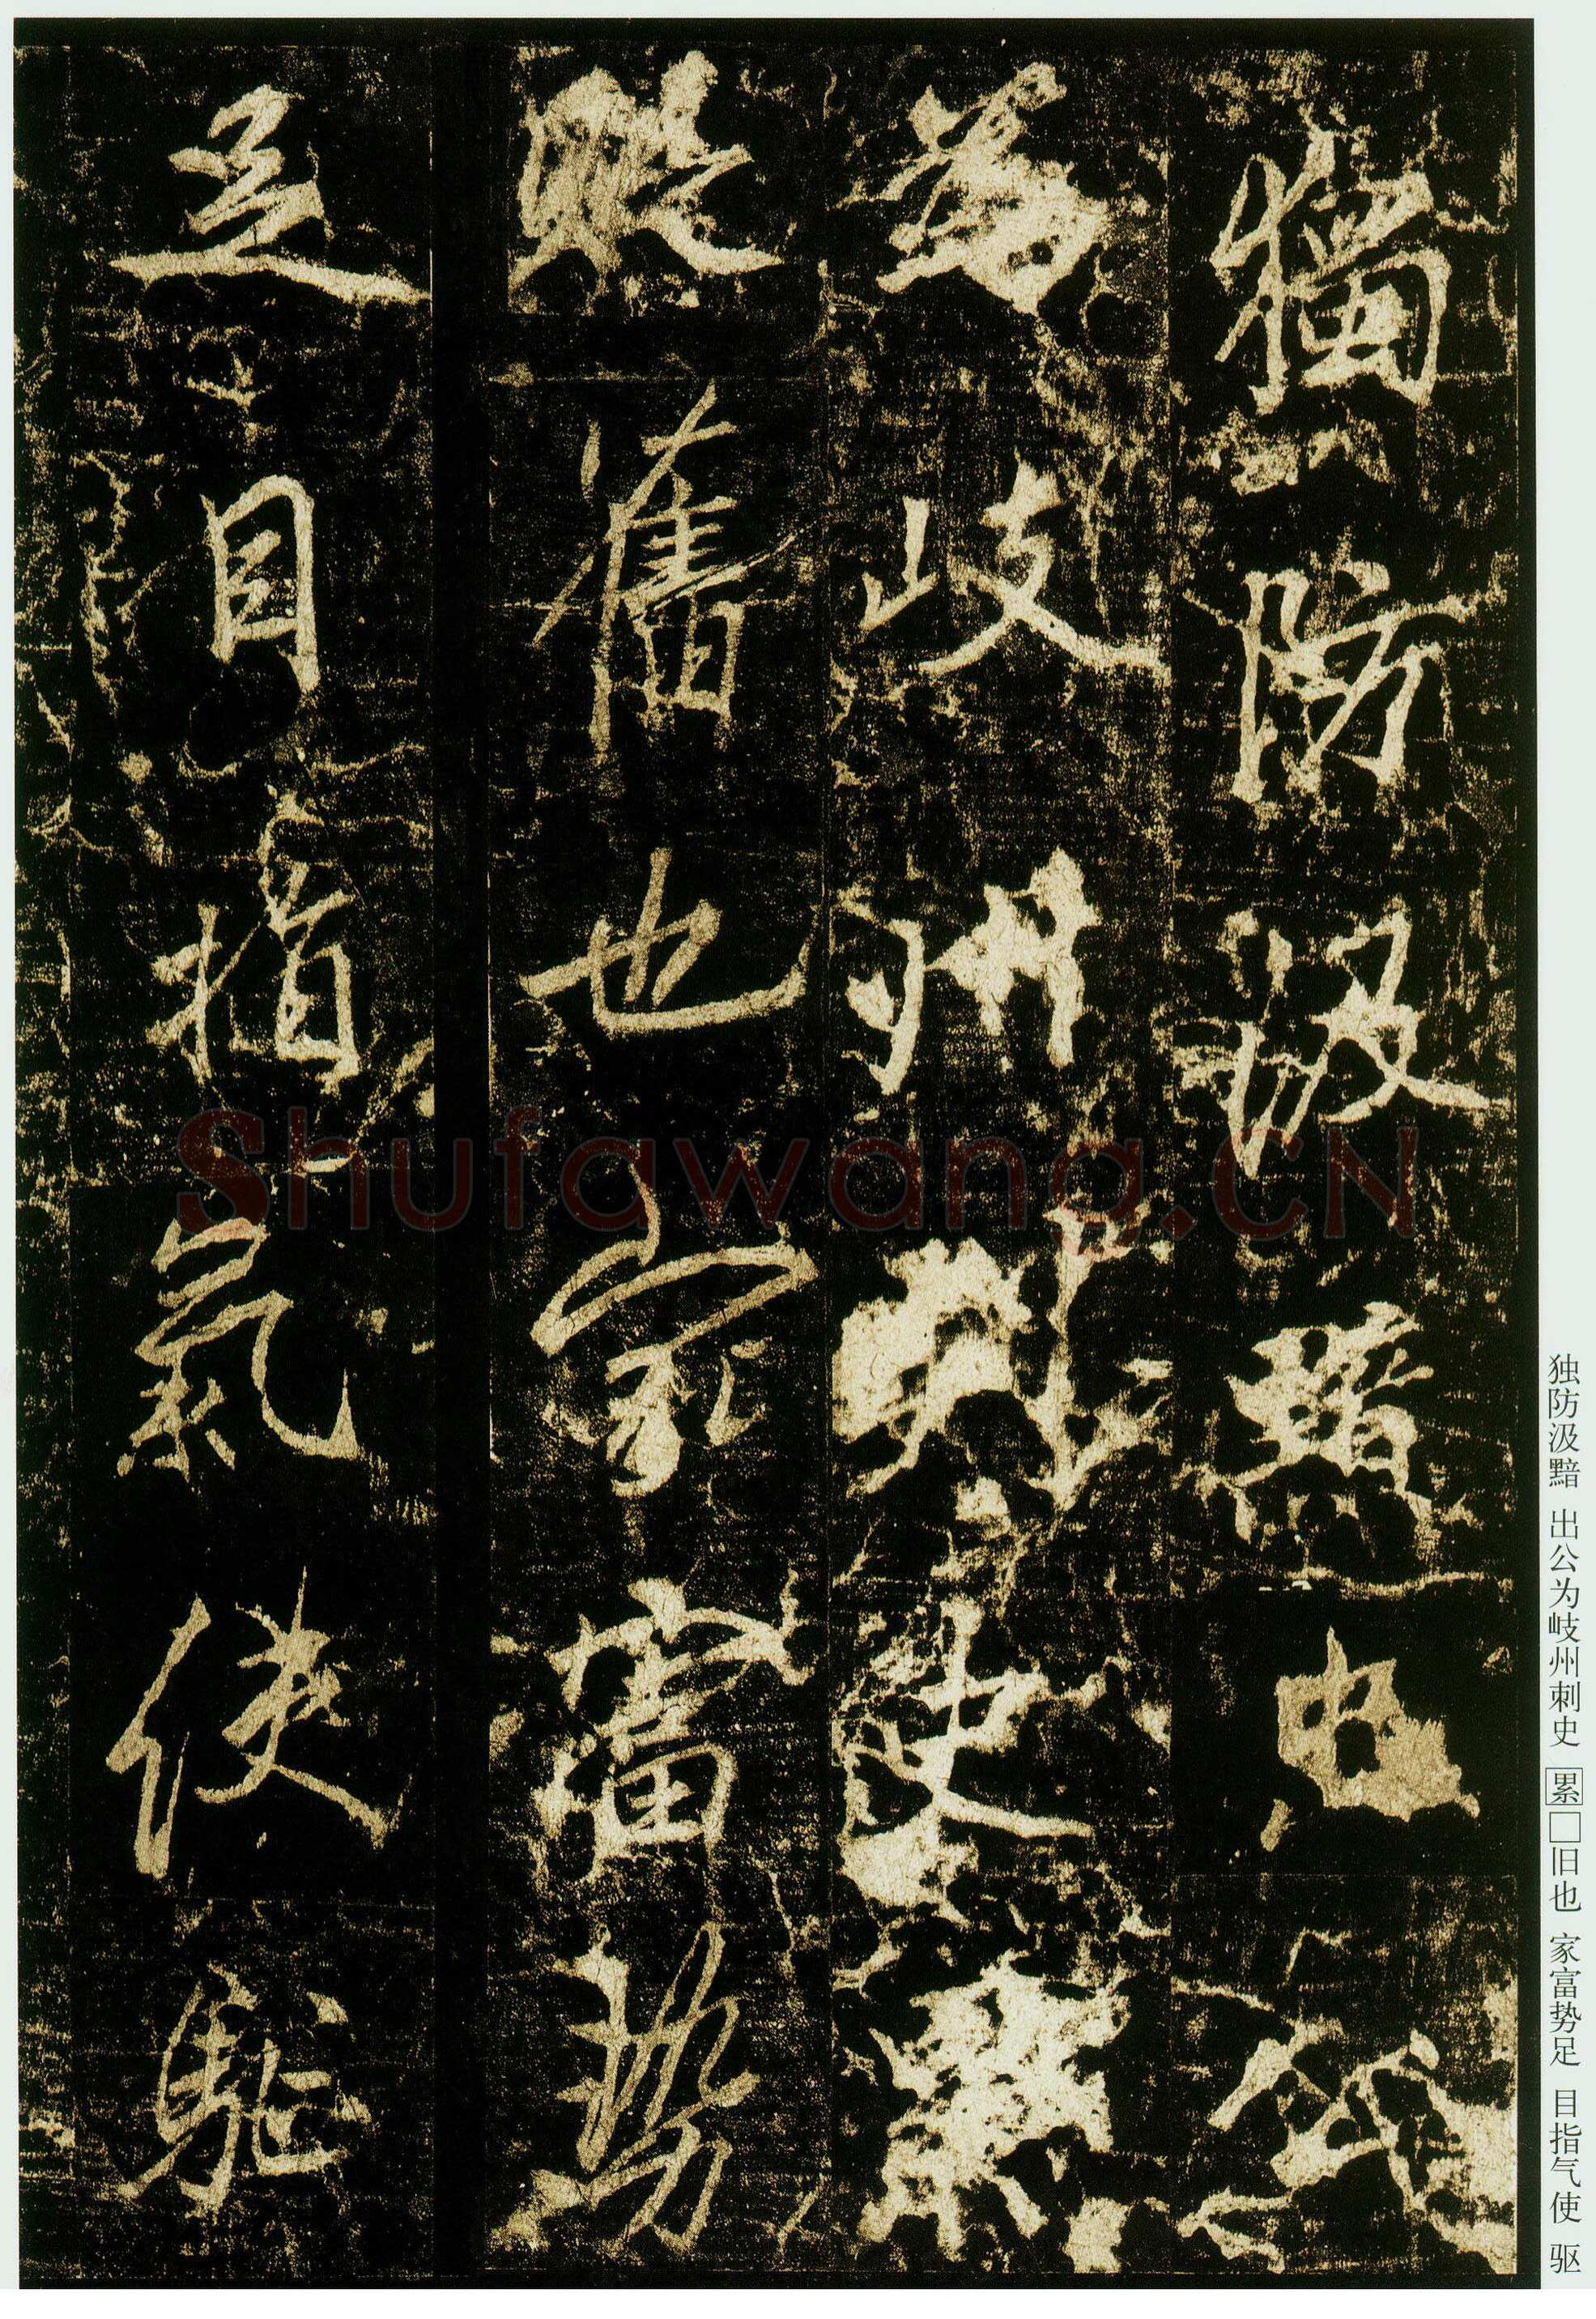 獨防汲黯出公
為岐州刺史累
舊也家富勢
足目指氣使駈
独防汲黯 出公为岐州刺史 累□旧也 家富势足 目指气使 驱
Shufawang.CN